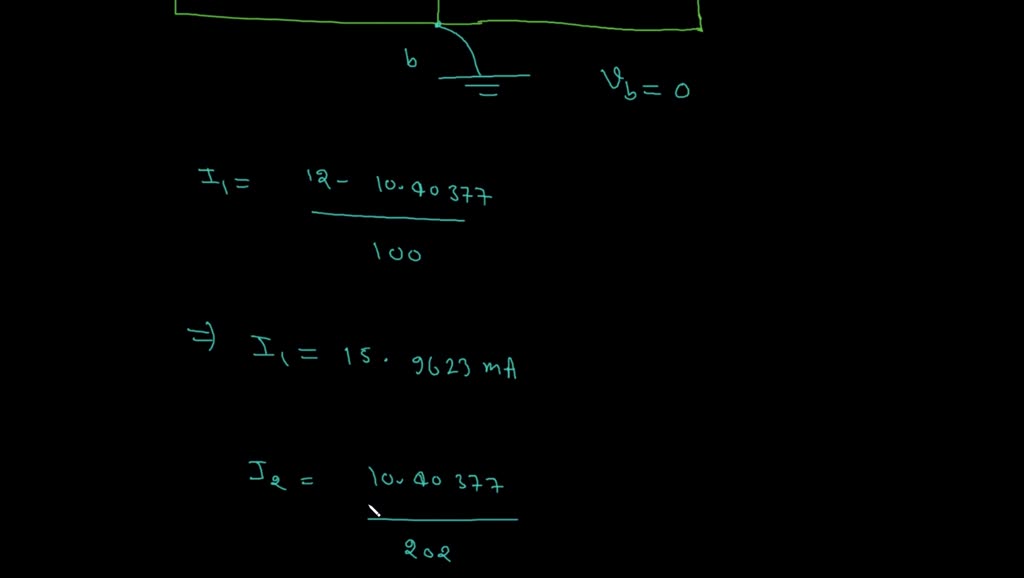 b
V_b = 0
I_1 = 12 - 10.40377
100
⇒ I_1 = 15.9623 mA
I_2 = 10.40377
202